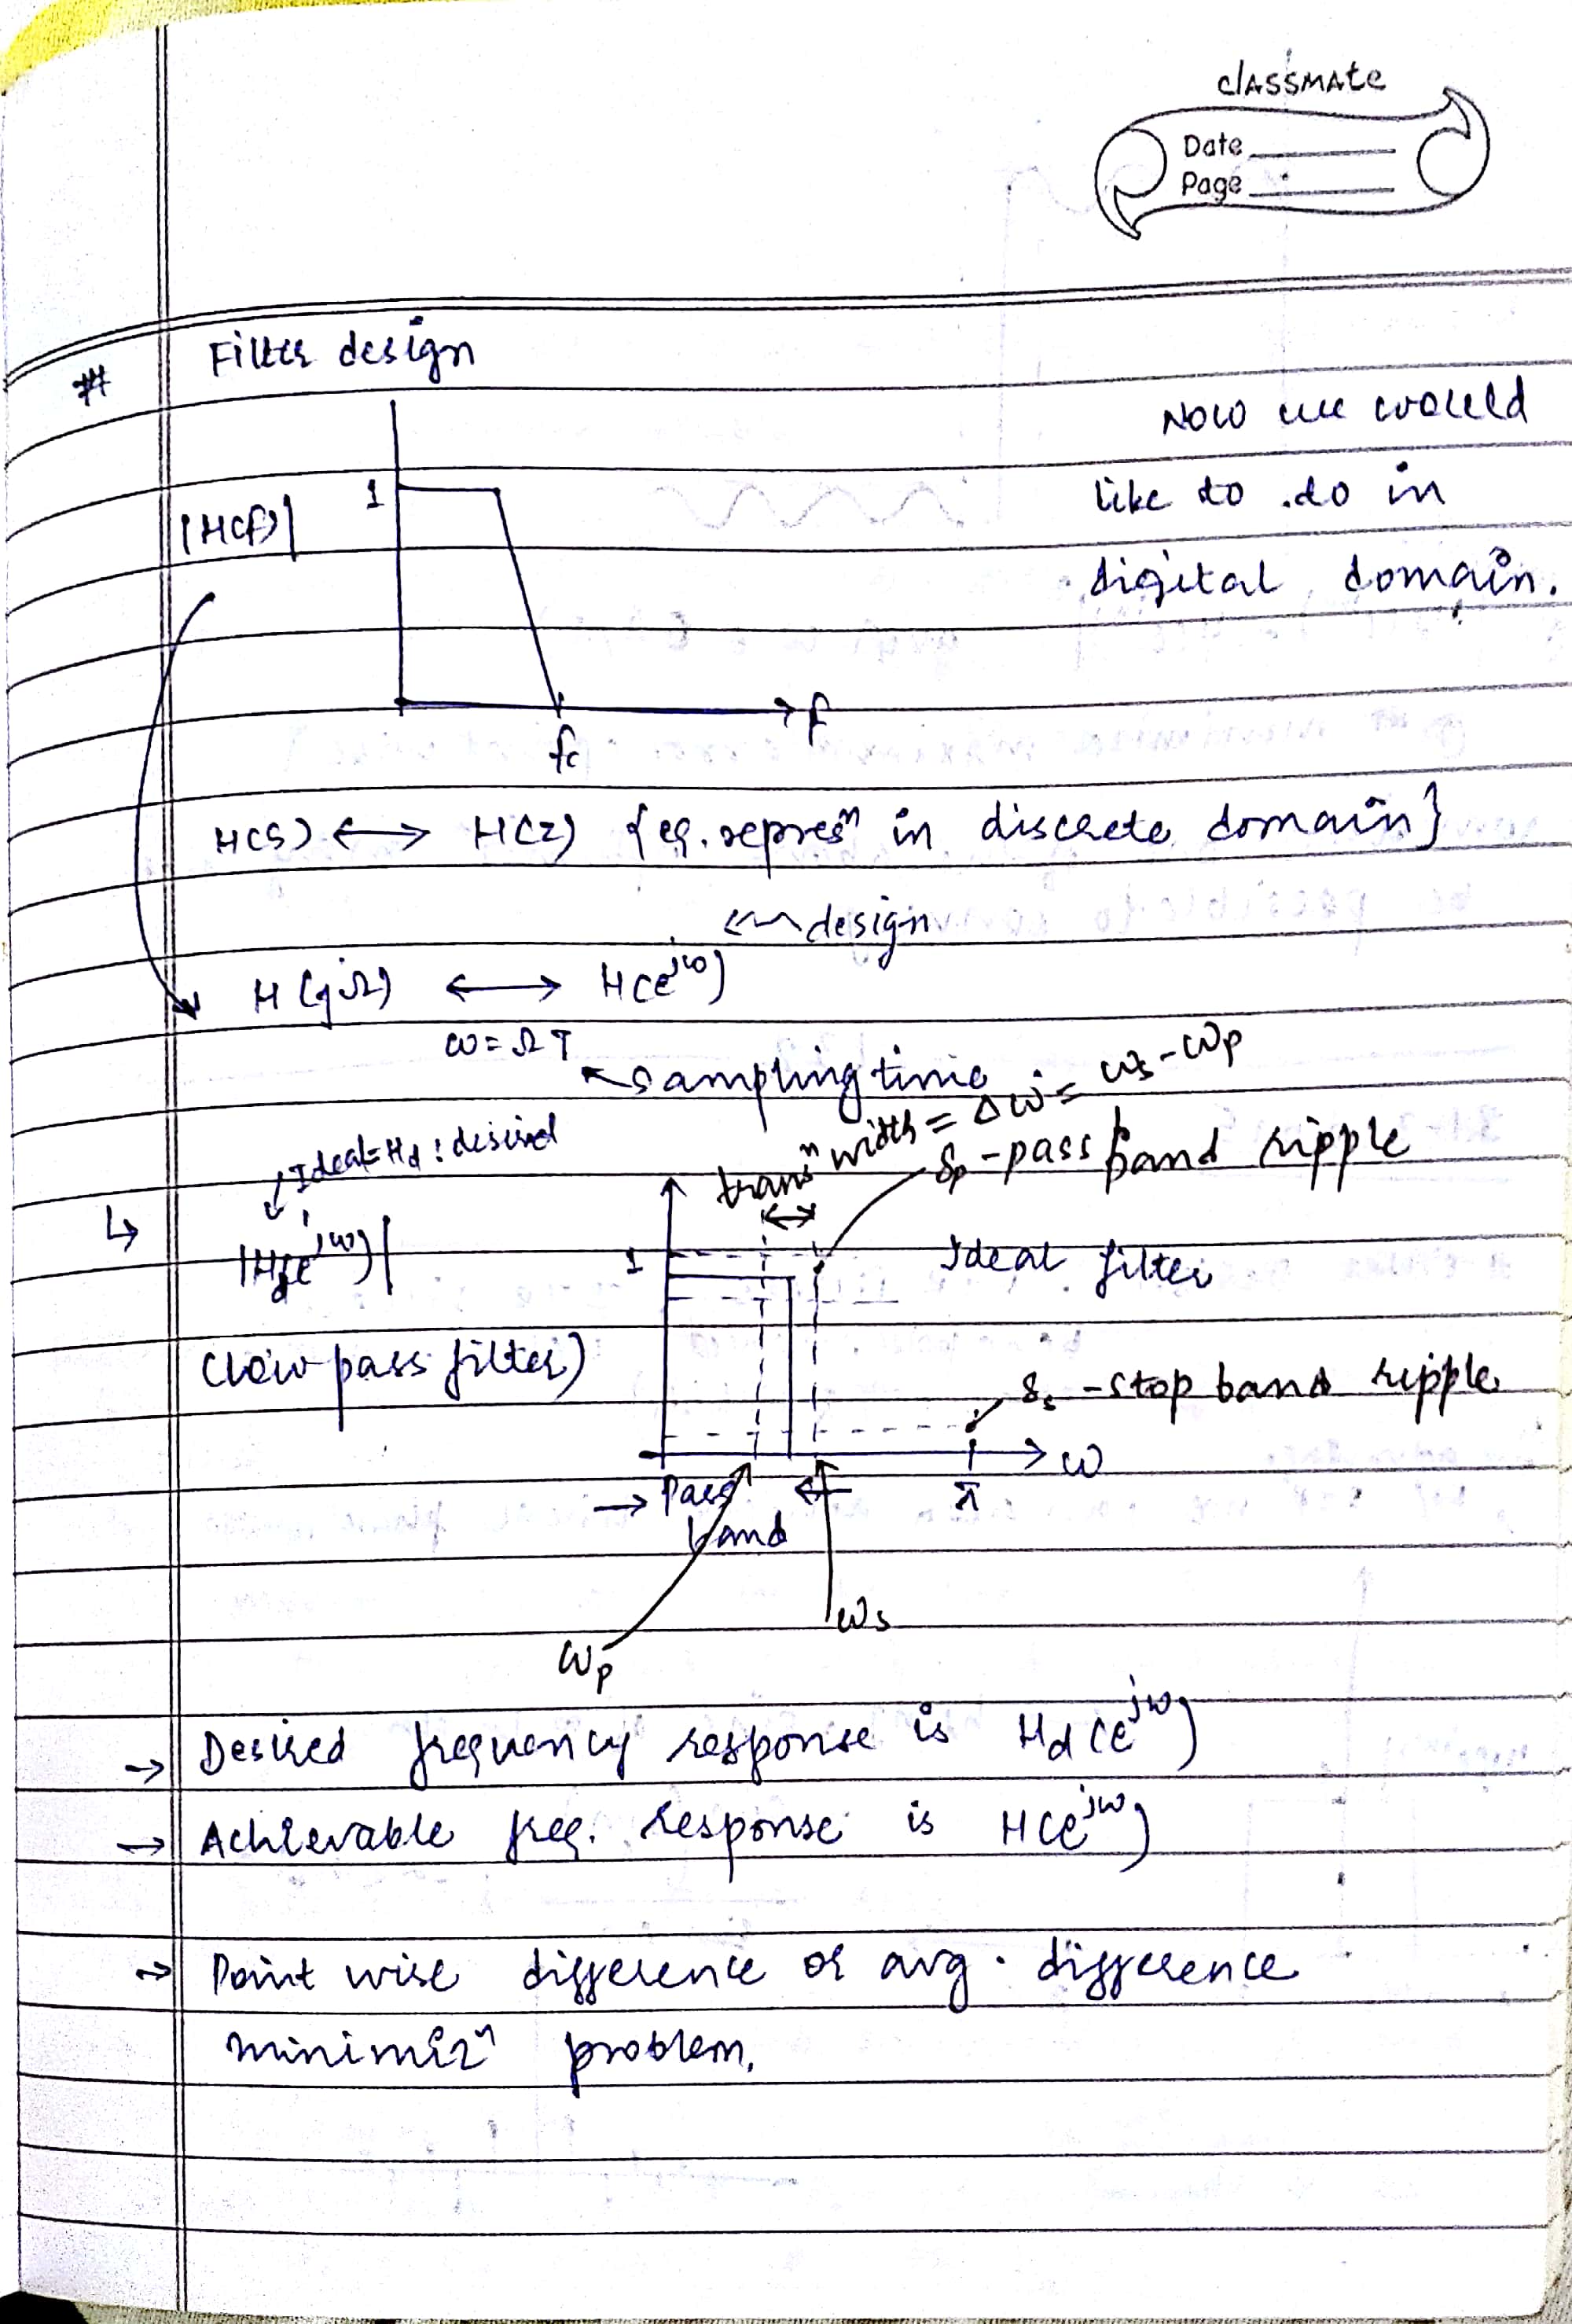 classmate
Date
Page
# Filter design
Now we would
like to do in
digital domain.
|H(f)|
1
f
fc
H(s) ↔ H(z) {eq. represⁿ in discrete domain}
design
H(jΩ) ↔ H(e^jω)
ω = ΩT
sampling time
transⁿ width = Δω = ωs - ωp
Ideal = Hd : desired
δp - pass band ripple
|Hd(e^jω)|
1
Ideal filter
(low pass filter)
δs - stop band ripple
ω
→ Pass
band
π
ωs
ωp
→ Desired frequency response is Hd(e^jω)
→ Achievable freq. response is H(e^jω)
→ Point wise difference or avg. difference
minimizⁿ problem.